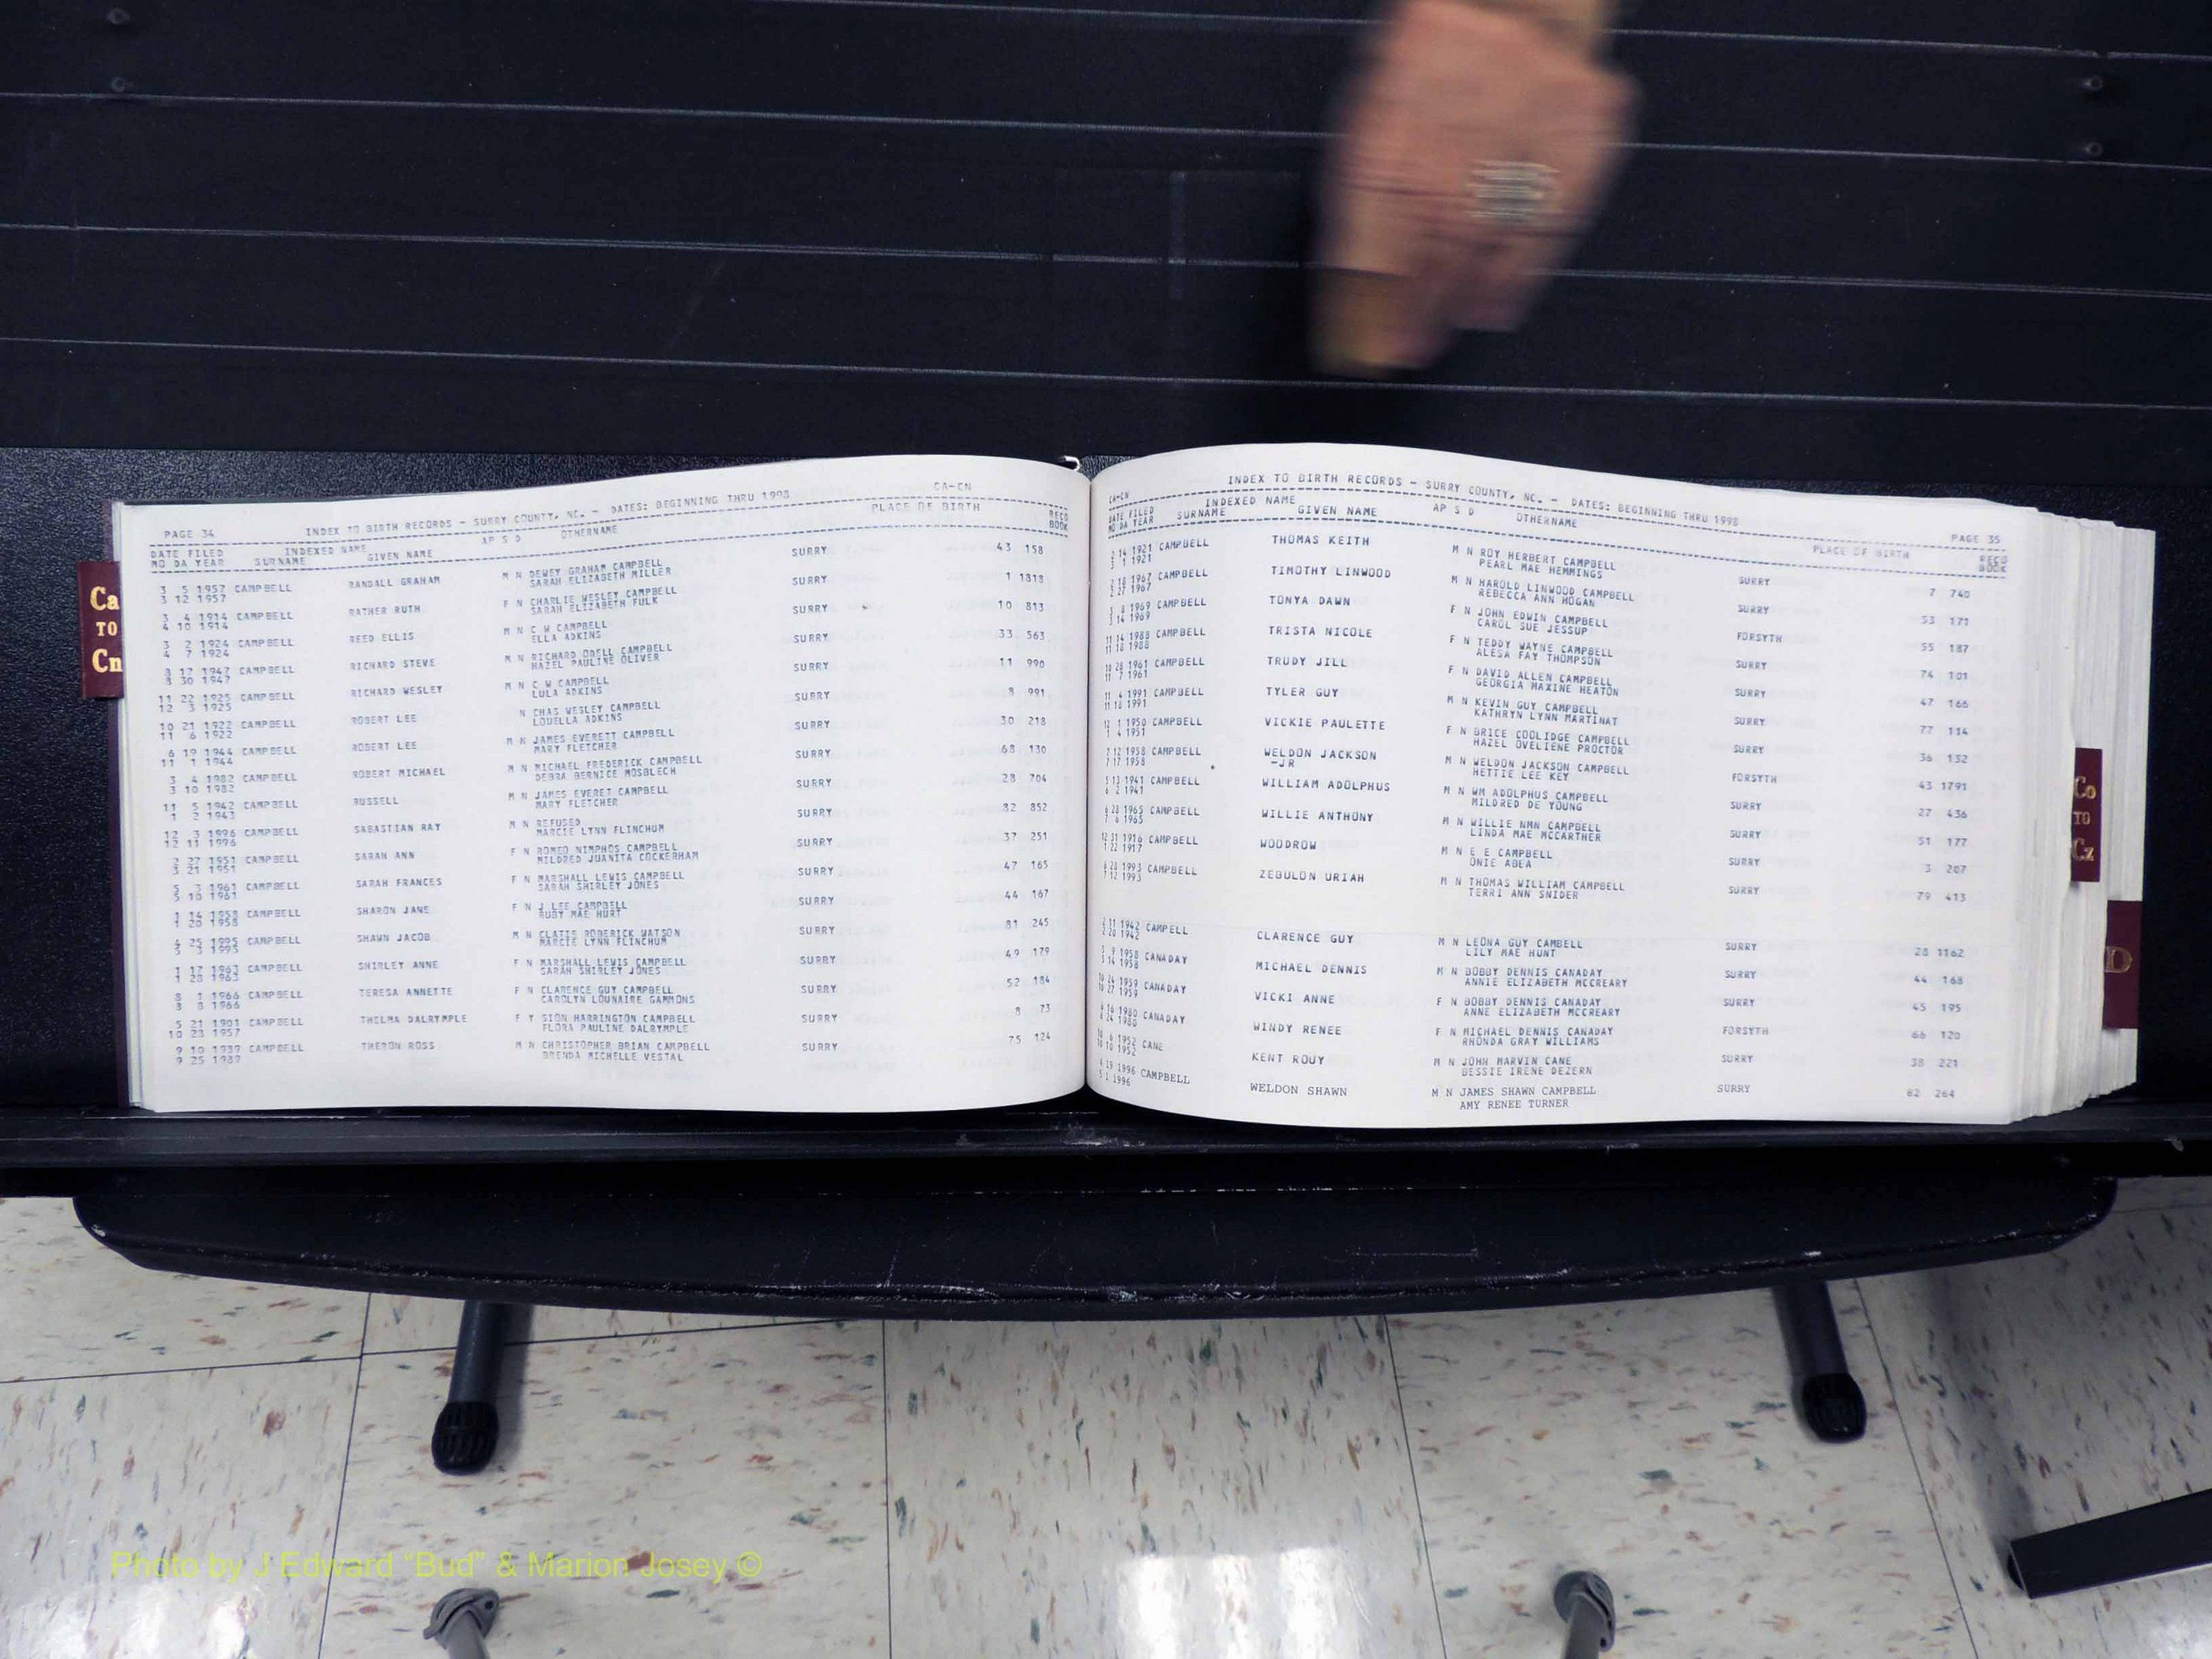 Ca
TO
Cn
PAGE 34 INDEX TO BIRTH RECORDS - SURRY COUNTY, NC. - DATES: BEGINNING THRU 1998 CA-CN
DATE FILED INDEXED NAME AP S D OTHERNAME PLACE OF BIRTH RECO
MO DA YEAR SURNAME GIVEN NAME BOOK
3 5 1957 CAMPBELL RANDALL GRAHAM M N DEWEY GRAHAM CAMPBELL SURRY 43 158
3 12 1957 SARAH ELIZABETH MILLER
3 4 1914 CAMPBELL RATHER RUTH F N CHARLIE WESLEY CAMPBELL SURRY 1 1818
4 10 1914 SARAH ELIZABETH FULK
3 2 1924 CAMPBELL REED ELLIS M N C W CAMPBELL SURRY 10 813
4 7 1924 ELLA ADKINS
8 17 1947 CAMPBELL RICHARD STEVE M N RICHARD ODELL CAMPBELL SURRY 33 563
8 30 1947 HAZEL PAULINE OLIVER
11 22 1925 CAMPBELL RICHARD WESLEY M N C W CAMPBELL SURRY 11 990
12 3 1925 LULA ADKINS
10 21 1922 CAMPBELL ROBERT LEE N CHAS WESLEY CAMPBELL SURRY 8 991
11 6 1922 LOUELLA ADKINS
6 19 1944 CAMPBELL ROBERT LEE M N JAMES EVERETT CAMPBELL SURRY 30 218
11 1 1944 MARY FLETCHER
3 4 1982 CAMPBELL ROBERT MICHAEL M N MICHAEL FREDERICK CAMPBELL SURRY 68 130
3 10 1982 DEBRA BERNICE MOSBLECH
11 5 1942 CAMPBELL RUSSELL M N JAMES EVERET CAMPBELL SURRY 28 704
1 2 1943 MARY FLETCHER
12 3 1996 CAMPBELL SABASTIAN RAY M N REFUSED SURRY 82 852
12 11 1996 MARCIE LYNN FLINCHUM
2 27 1951 CAMPBELL SARAH ANN F N ROMEO NIMPHOS CAMPBELL SURRY 37 251
3 21 1951 MILDRED JUANITA COCKERHAM
5 3 1961 CAMPBELL SARAH FRANCES F N MARSHALL LEWIS CAMPBELL SURRY 47 165
5 10 1961 SARAH SHIRLEY JONES
1 14 1958 CAMPBELL SHARON JANE F N J LEE CAMPBELL SURRY 44 167
1 20 1958 RUBY MAE HURT
4 25 1995 CAMPBELL SHAWN JACOB M N CLATIS RODERICK WATSON SURRY 81 245
5 3 1995 MARCIE LYNN FLINCHUM
1 17 1963 CAMPBELL SHIRLEY ANNE F N MARSHALL LEWIS CAMPBELL SURRY 49 179
1 28 1963 SARAH SHIRLEY JONES
8 1 1966 CAMPBELL TERESA ANNETTE F N CLARENCE GUY CAMPBELL SURRY 52 184
8 8 1966 CAROLYN LOUNAIRE GAMMONS
5 21 1901 CAMPBELL THELMA DALRYMPLE F Y SION HARRINGTON CAMPBELL SURRY 8 73
10 23 1957 FLORA PAULINE DALRYMPLE
9 10 1989 CAMPBELL THERON ROSS M N CHRISTOPHER BRIAN CAMPBELL SURRY 75 124
9 25 1989 BRENDA MICHELLE VESTAL
CA-CN INDEX TO BIRTH RECORDS - SURRY COUNTY, NC. - DATES: BEGINNING THRU 1998 PAGE 35
DATE FILED INDEXED NAME AP S D OTHERNAME PLACE OF BIRTH RECO
MO DA YEAR SURNAME GIVEN NAME BOOK
2 14 1921 CAMPBELL THOMAS KEITH M N ROY HERBERT CAMPBELL SURRY 7 740
3 1 1921 PEARL MAE HEMMINGS
2 18 1967 CAMPBELL TIMOTHY LINWOOD M N HAROLD LINWOOD CAMPBELL SURRY 53 171
2 27 1967 REBECCA ANN HOGAN
3 8 1969 CAMPBELL TONYA DAWN F N JOHN EDWIN CAMPBELL FORSYTH 55 187
3 14 1969 CAROL SUE JESSUP
11 14 1988 CAMPBELL TRISTA NICOLE F N TEDDY WAYNE CAMPBELL SURRY 74 101
11 18 1988 ALESA FAY THOMPSON
10 28 1961 CAMPBELL TRUDY JILL F N DAVID ALLEN CAMPBELL SURRY 47 166
11 7 1961 GEORGIA MAXINE HEATON
11 4 1991 CAMPBELL TYLER GUY M N KEVIN GUY CAMPBELL SURRY 77 114
11 18 1991 KATHRYN LYNN MARTINAT
12 1 1950 CAMPBELL VICKIE PAULETTE F N BRICE COOLIDGE CAMPBELL SURRY 36 132
1 4 1951 HAZEL OVELIENE PROCTOR
7 12 1958 CAMPBELL WELDON JACKSON M N WELDON JACKSON CAMPBELL FORSYTH 43 1791
7 17 1958 -JR HETTIE LEE KEY
5 13 1941 CAMPBELL WILLIAM ADOLPHUS M N WM ADOLPHUS CAMPBELL SURRY 27 436
6 2 1941 MILDRED DE YOUNG
6 28 1965 CAMPBELL WILLIE ANTHONY M N WILLIE NMN CAMPBELL SURRY 51 177
7 6 1965 LINDA MAE MCCARTHER
12 31 1916 CAMPBELL WOODROW M N E E CAMPBELL SURRY 3 207
1 22 1917 ONIE ABEA
6 28 1993 CAMPBELL ZEBULON URIAH M N THOMAS WILLIAM CAMPBELL SURRY 79 413
7 12 1993 TERRI ANN SNIDER
2 11 1942 CAMPELL CLARENCE GUY M N LEONA GUY CAMBELL SURRY 28 1162
2 20 1942 LILY MAE HUNT
5 9 1958 CANADAY MICHAEL DENNIS M N BOBBY DENNIS CANADAY SURRY 44 168
5 14 1958 ANNIE ELIZABETH MCCREARY
10 24 1959 CANADAY VICKI ANNE F N BOBBY DENNIS CANADAY SURRY 45 195
10 27 1959 ANNE ELIZABETH MCCREARY
6 16 1980 CANADAY WINDY RENEE F N MICHAEL DENNIS CANADAY FORSYTH 66 120
6 24 1980 RHONDA GRAY WILLIAMS
10 6 1952 CANE KENT ROUY M N JOHN MARVIN CANE SURRY 38 221
10 10 1952 BESSIE IRENE DEZERN
4 19 1996 CAMPBELL WELDON SHAWN M N JAMES SHAWN CAMPBELL SURRY 82 264
5 1 1996 AMY RENEE TURNER
Co
TO
Cz
D
Photo by J Edward "Bud" & Marion Josey ©